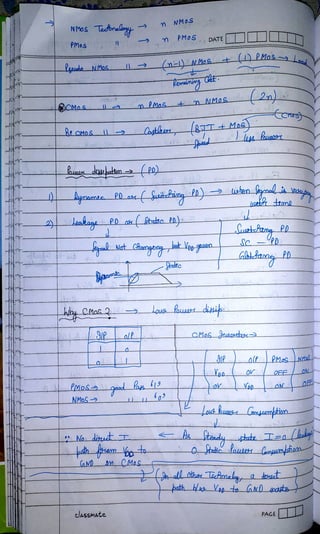 → NMOS Technology → n NMOS
PMOS " → n PMOS DATE
Pseudo NMOS " → (n-1) NMOS + (1) PMOS → Load
Remaining Ckt.
CMOS " → n PMOS + n NMOS (2n)
Bi CMOS " → Combines, (BJT + MOS) (CMOS)
Speed Low Power
Power dissipation → (PD)
1) Dynamic PD or (Switching PD) → when signal is varying with time
2) Leakage PD or (Static PD)
Signal Not changing, but VDD given
Switching PD
SC - PD
Glitching PD
Dynamic Static
Why CMOS? → Low Power dissip.
I/P O/P
1 0
0 1
PMOS → good Pass '1's
NMOS → " " '0's
CMOS Inverter →
I/P O/P PMOS NMOS
VDD 0V OFF ON
0V VDD ON OFF
Low Power Consumption
∵ No direct I ← At Steady state I=0
path from VDD to 0 Static Power Consumption
GND in CMOS
(In all other Technology, a direct
path b/w VDD to GND exists)
classmate PAGE